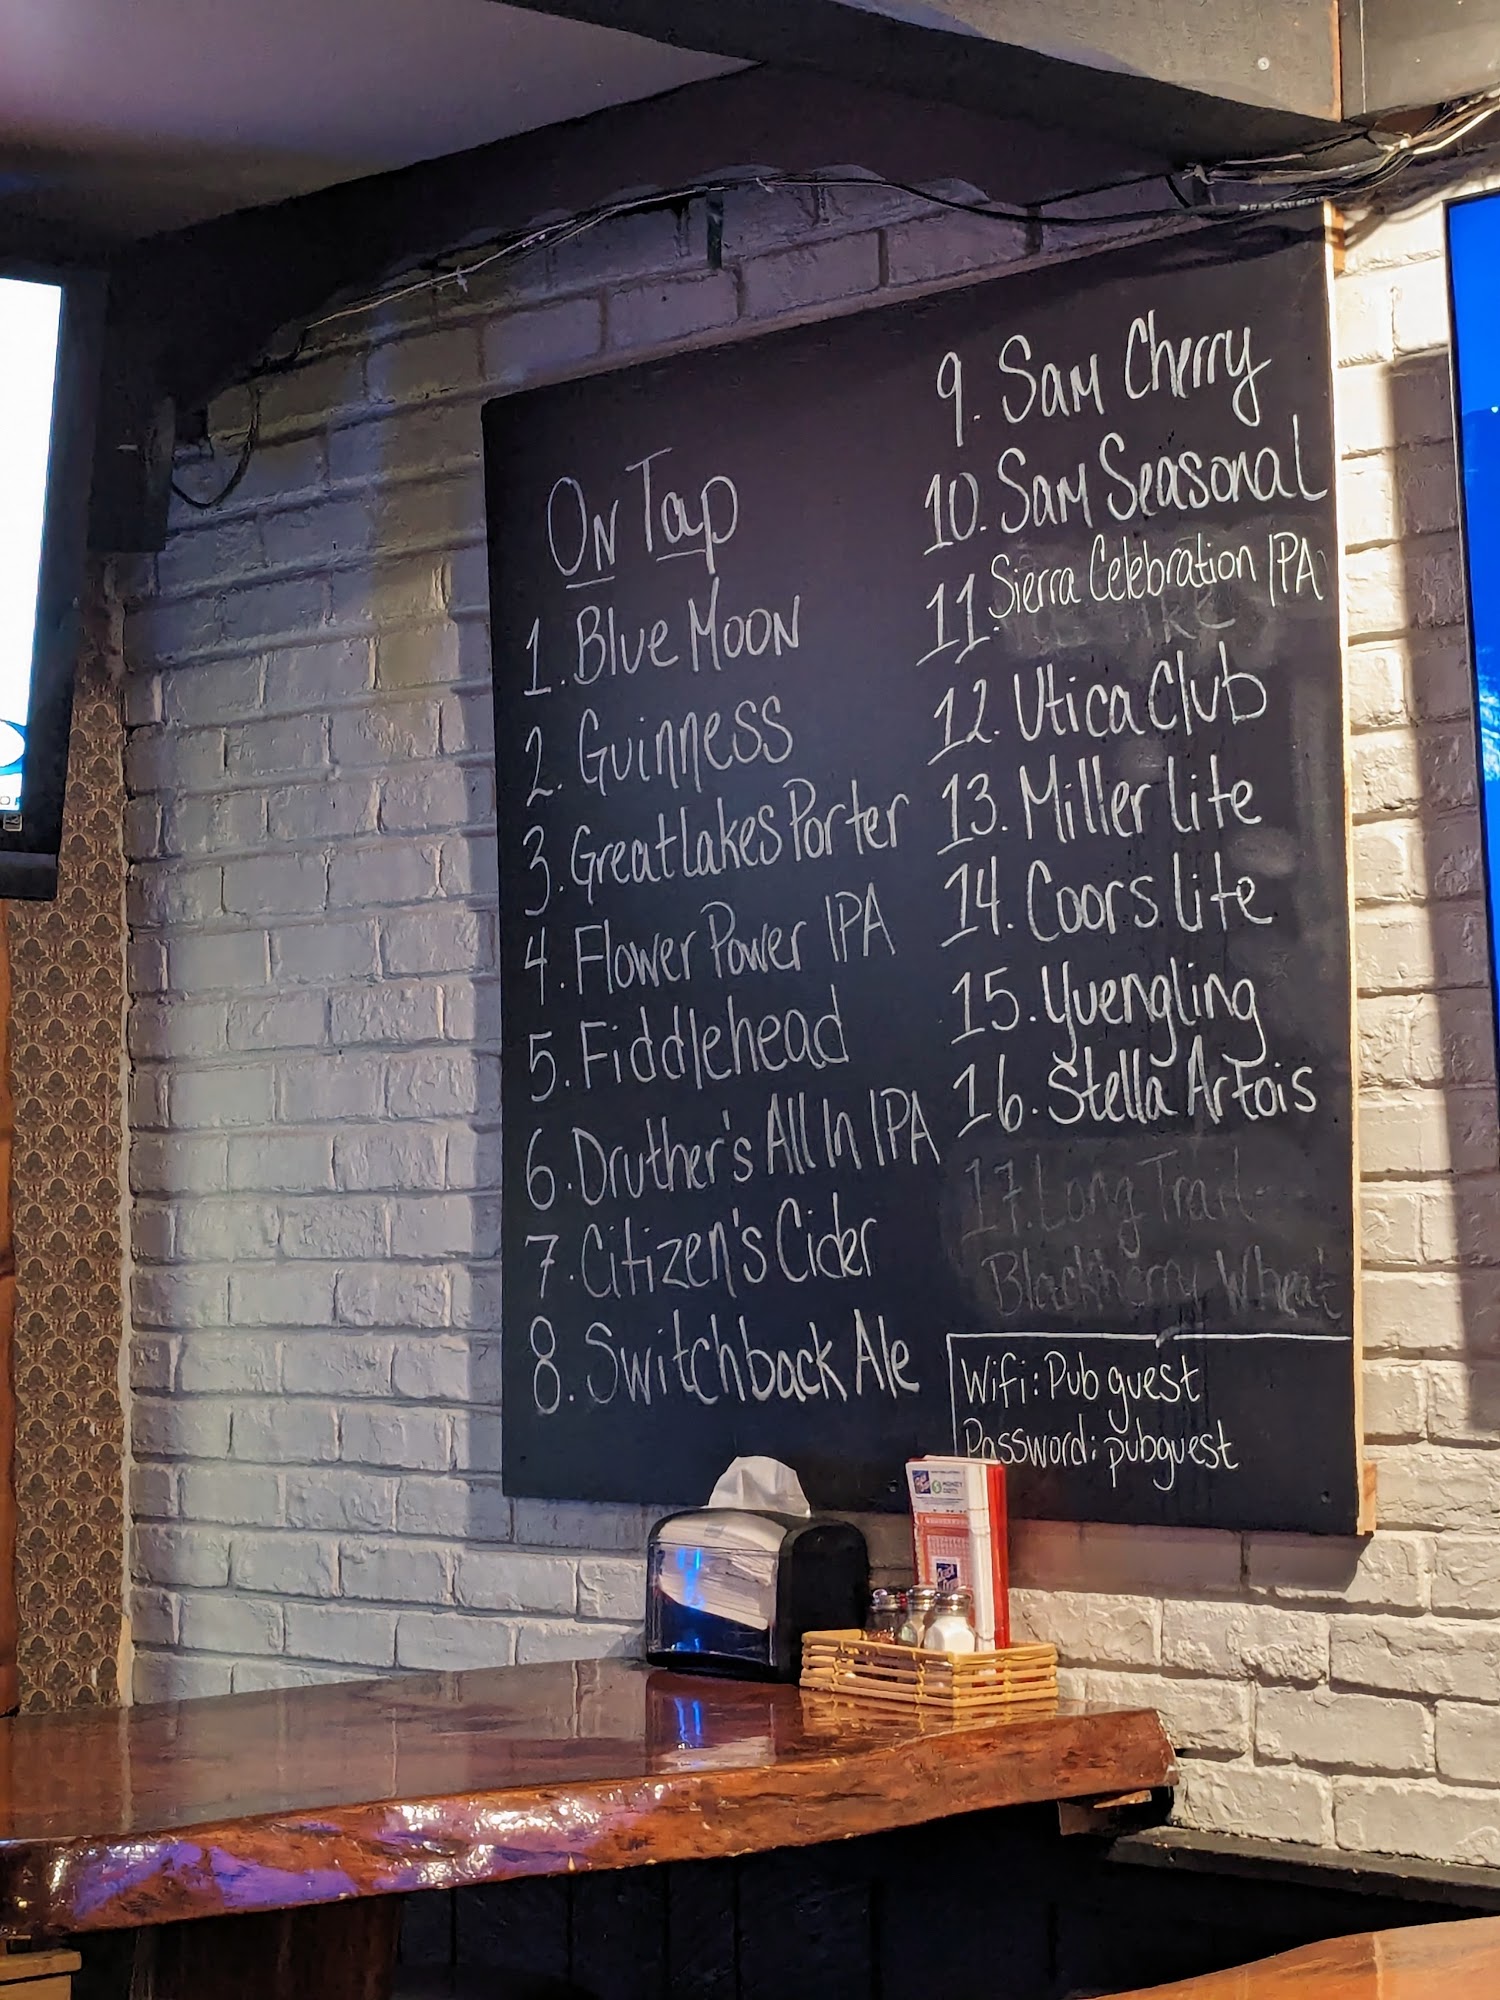 On Tap
1. Blue Moon
2. Guinness
3. Great Lakes Porter
4. Flower Power IPA
5. Fiddlehead
6. Druther's All In IPA
7. Citizen's Cider
8. Switchback Ale
9. Sam Cherry
10. Sam Seasonal
11. Sierra Celebration IPA
12. Utica Club
13. Miller Lite
14. Coors Lite
15. Yuengling
16. Stella Artois
17. Long Trail
Blackberry Wheat
Wifi: Pub guest
Password: pubguest